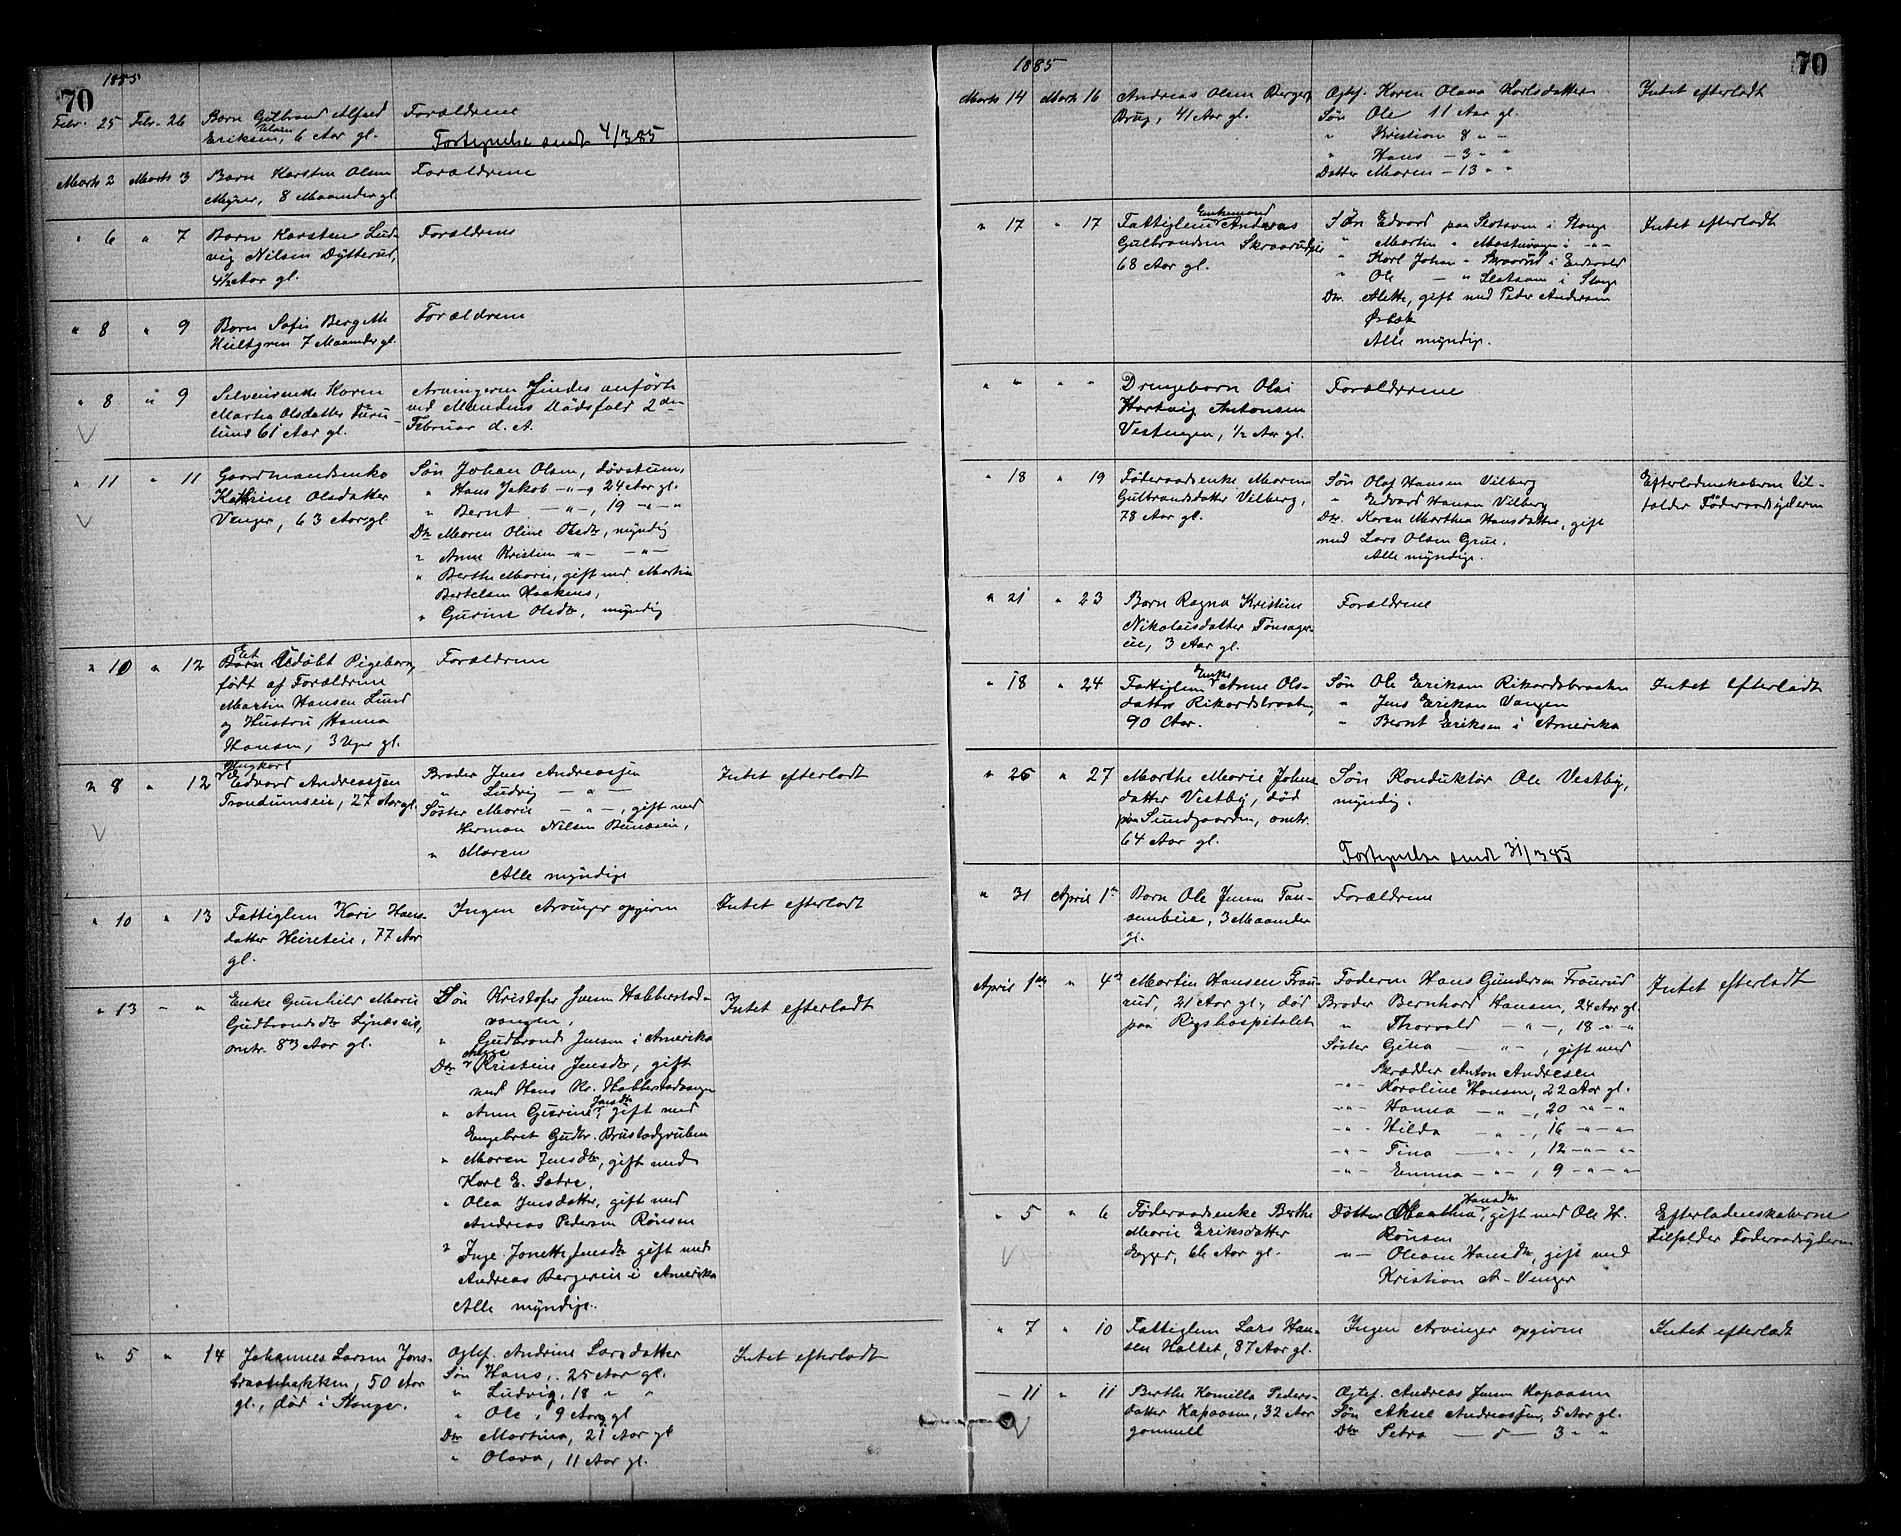 70
1885
Febr. 25 Febr. 26 Barn Gulbrand Alfred Forældrene
Eriksen, 6 Aar gl.
Fortegnelse sendt 4/3 85
Marts 2 Marts 3 Barn Karsten Olsen Forældrene
Myrer, 8 Maaneder gl.
" 6 " 7 Barn Karsten Lud- Forældrene
vig Nilsen Dytterud,
4½ Aar gl.
" 8 " 9 Barn Sofie Bergette Forældrene
Hultgren 7 Maaneder gl.
" 8 " 9 Selveierenke Karen Arvingerne findes anført
Martea Olsdatter Furu- ved Mandens Dødsfald 2den
lund 61 Aar gl. Februar d. A.
" 11 " 11 Gaardmandsenke Søn Johan Olsen,
Kathrine Olsdatter " Hans Jakob -"-, 24 Aar gl.
Venger, 63 Aar gl. " Bernt -"-, 19 -"-"
Dtr Maren Oline Olsdtr, myndig
" Anne Kristine -"- -"-
" Berthe Marie, gift med Martin
Bertelsen Haakens,
" Gurine Olsdtr, myndig
" 10 " 12 Et Udøbt Pigebarn, Forældrene
født af Forældrene
Martin Hansen Lund
og Hustru Hanna
Hansen, 3 Uger gl.
" 8 " 12 Ungkarl Edvard Andreassen Broder Jens Andreassen Intet efterladt
Trondumseie, 27 Aar gl. " Ludvig -"-
Søster Marie -"-, gift med
Herman Nilsen Bundseie,
" Maren
Alle myndige
" 10 " 13 Fattiglem Kari Hans- Ingen Arvinger opgivne Intet efterladt
datter Heireteie, 77 Aar
gl.
" 13 - " Enke Gunhild Marie Søn Kristofer Jensen Habberstad- Intet efterladt
Gudbrandsdtr Lynæseie, vangen,
omtr. 83 Aar gl. " Gudbrand Jensen i Amerika
Dtr Kristine Jensdtr, gift
med Hans Kr. Habberstadvangen
" Anne Gurine Jensdtr, gift med
Engebret Gudbr. Brustadgruben
" Maren Jensdtr, gift med
Karl E. Sætre,
" Olea Jensdatter, gift med
Andreas Pedersen Rønsen
" Inge Jonette Jensdtr gift med
Andreas Bergereie i Amerika
Alle myndige.
" 5 " 14 Johannes Larsen Jons- Ogtef. Andrine Larsdatter Intet efterladt
braatebakken, 50 Aar Søn Hans, 25 Aar gl.
gl., død i Stange. " Ludvig, 18 " "
" Ole, 9 Aar gl
Dtr Martina, 21 Aar gl
" Olava, 11 Aar gl.
70
1885
Marts 14 Marts 16 Andreas Olsen Berger, Ogtef. Karen Olava Karlsdatter Intet efterladt
Brug, 41 Aar gl. Søn Ole 11 Aar gl.
" Kristian 8 " -
" Hans - 3 " "
Datter Maren - 13 " "
" 17 " 17 Fattiglem Enkemand Andreas Søn Edvard paa Slotsvem i Stange Intet efterladt
Gulbrandsen Skraarudeie " Martin " i -"-
68 Aar gl. " Karl Johan " Skraarud i Eidsvold
" Ole - " i Stange
Dtr. Alette, gift med Peder Andersen
Ørbæk
Alle myndige.
" " " " Drengebarn Olai Forældrerne
Hartvig Antonsen
Vestengen, ½ Aar gl.
" 18 " 19 Føderaadsenke Maren Søn Olaf Hansen Vilberg Efterladenskaberne til-
Gulbrandsdatter Vilberg, " Edvard Hansen Vilberg falder Føderaadsyderen
78 Aar gl. Dtr. Karen Marthea Hansdatter, gift
med Lars Olsen Grue.
Alle myndige.
" 21 " 23 Barn Ragna Kristine Forældrene
Nikolaisdatter Tønsager-
eie, 3 Aar gl.
" 18 " 24 Fattiglem Enke Anne Ols- Søn Ole Eriksen Rikardsbraaten Intet efterladt
datter Rikardsbraaten, " Jens Eriksen Vangen
90 Aar. " Bernt Eriksen i Amerika
" 26 " 27 Marthe Marie Johns- Søn Konduktør Ole Vestby,
datter Vestby, død myndig.
paa Sundgaarden, omtr.
64 Aar gl.
Fortegnelse sendt 31/3 85
" 31 April 1ste Barn Ole Jensen Tau- Forældrene
senbeie, 3 Maaneder
gl.
April 1ste " 4de Martin Hansen Frau- Faderen Hans Gundersen Fraurud Intet efterladt
rud, 21 Aar gl., død Broder Bernhard Hansen, 24 Aar gl.
paa Rigshospitalet " Thorvald -"-, 18 " "
Søster Gina -"-, gift med
Skrædder Anton Andresen
-"- Karoline Hansen, 22 Aar gl.
-"- Hanna -"-, 20 -"-"
-"- Hilda -"-, 16 -"-"
-"- Tina -"-, 12 -"-"
-"- Emma -"-, 9 -"-"
" 5 " 6 Føderaadsenke Berthe Datter Maathea Hansdtr, gift med Ole H. Efterladenskaberne
Marie Eriksdatter Rønsen tilfalder Føderaadsyderen
Egger, 66 Aar gl. -"- Oleane Hansdtr, gift med
Kristian A. Venger
" 7 " 10 Fattiglem Lars Han- Ingen Arvinger opgivne Intet efterladt
sen Haltet, 87 Aar gl.
- 11 " 11 Berthe Kamilla Peders- Ogtef. Andreas Jensen Kapaasen
datter Kapaasen, 32 Aar Søn Aksel Andreassen, 5 Aar gl.
gammel Dtr Petra -"- 3 " "